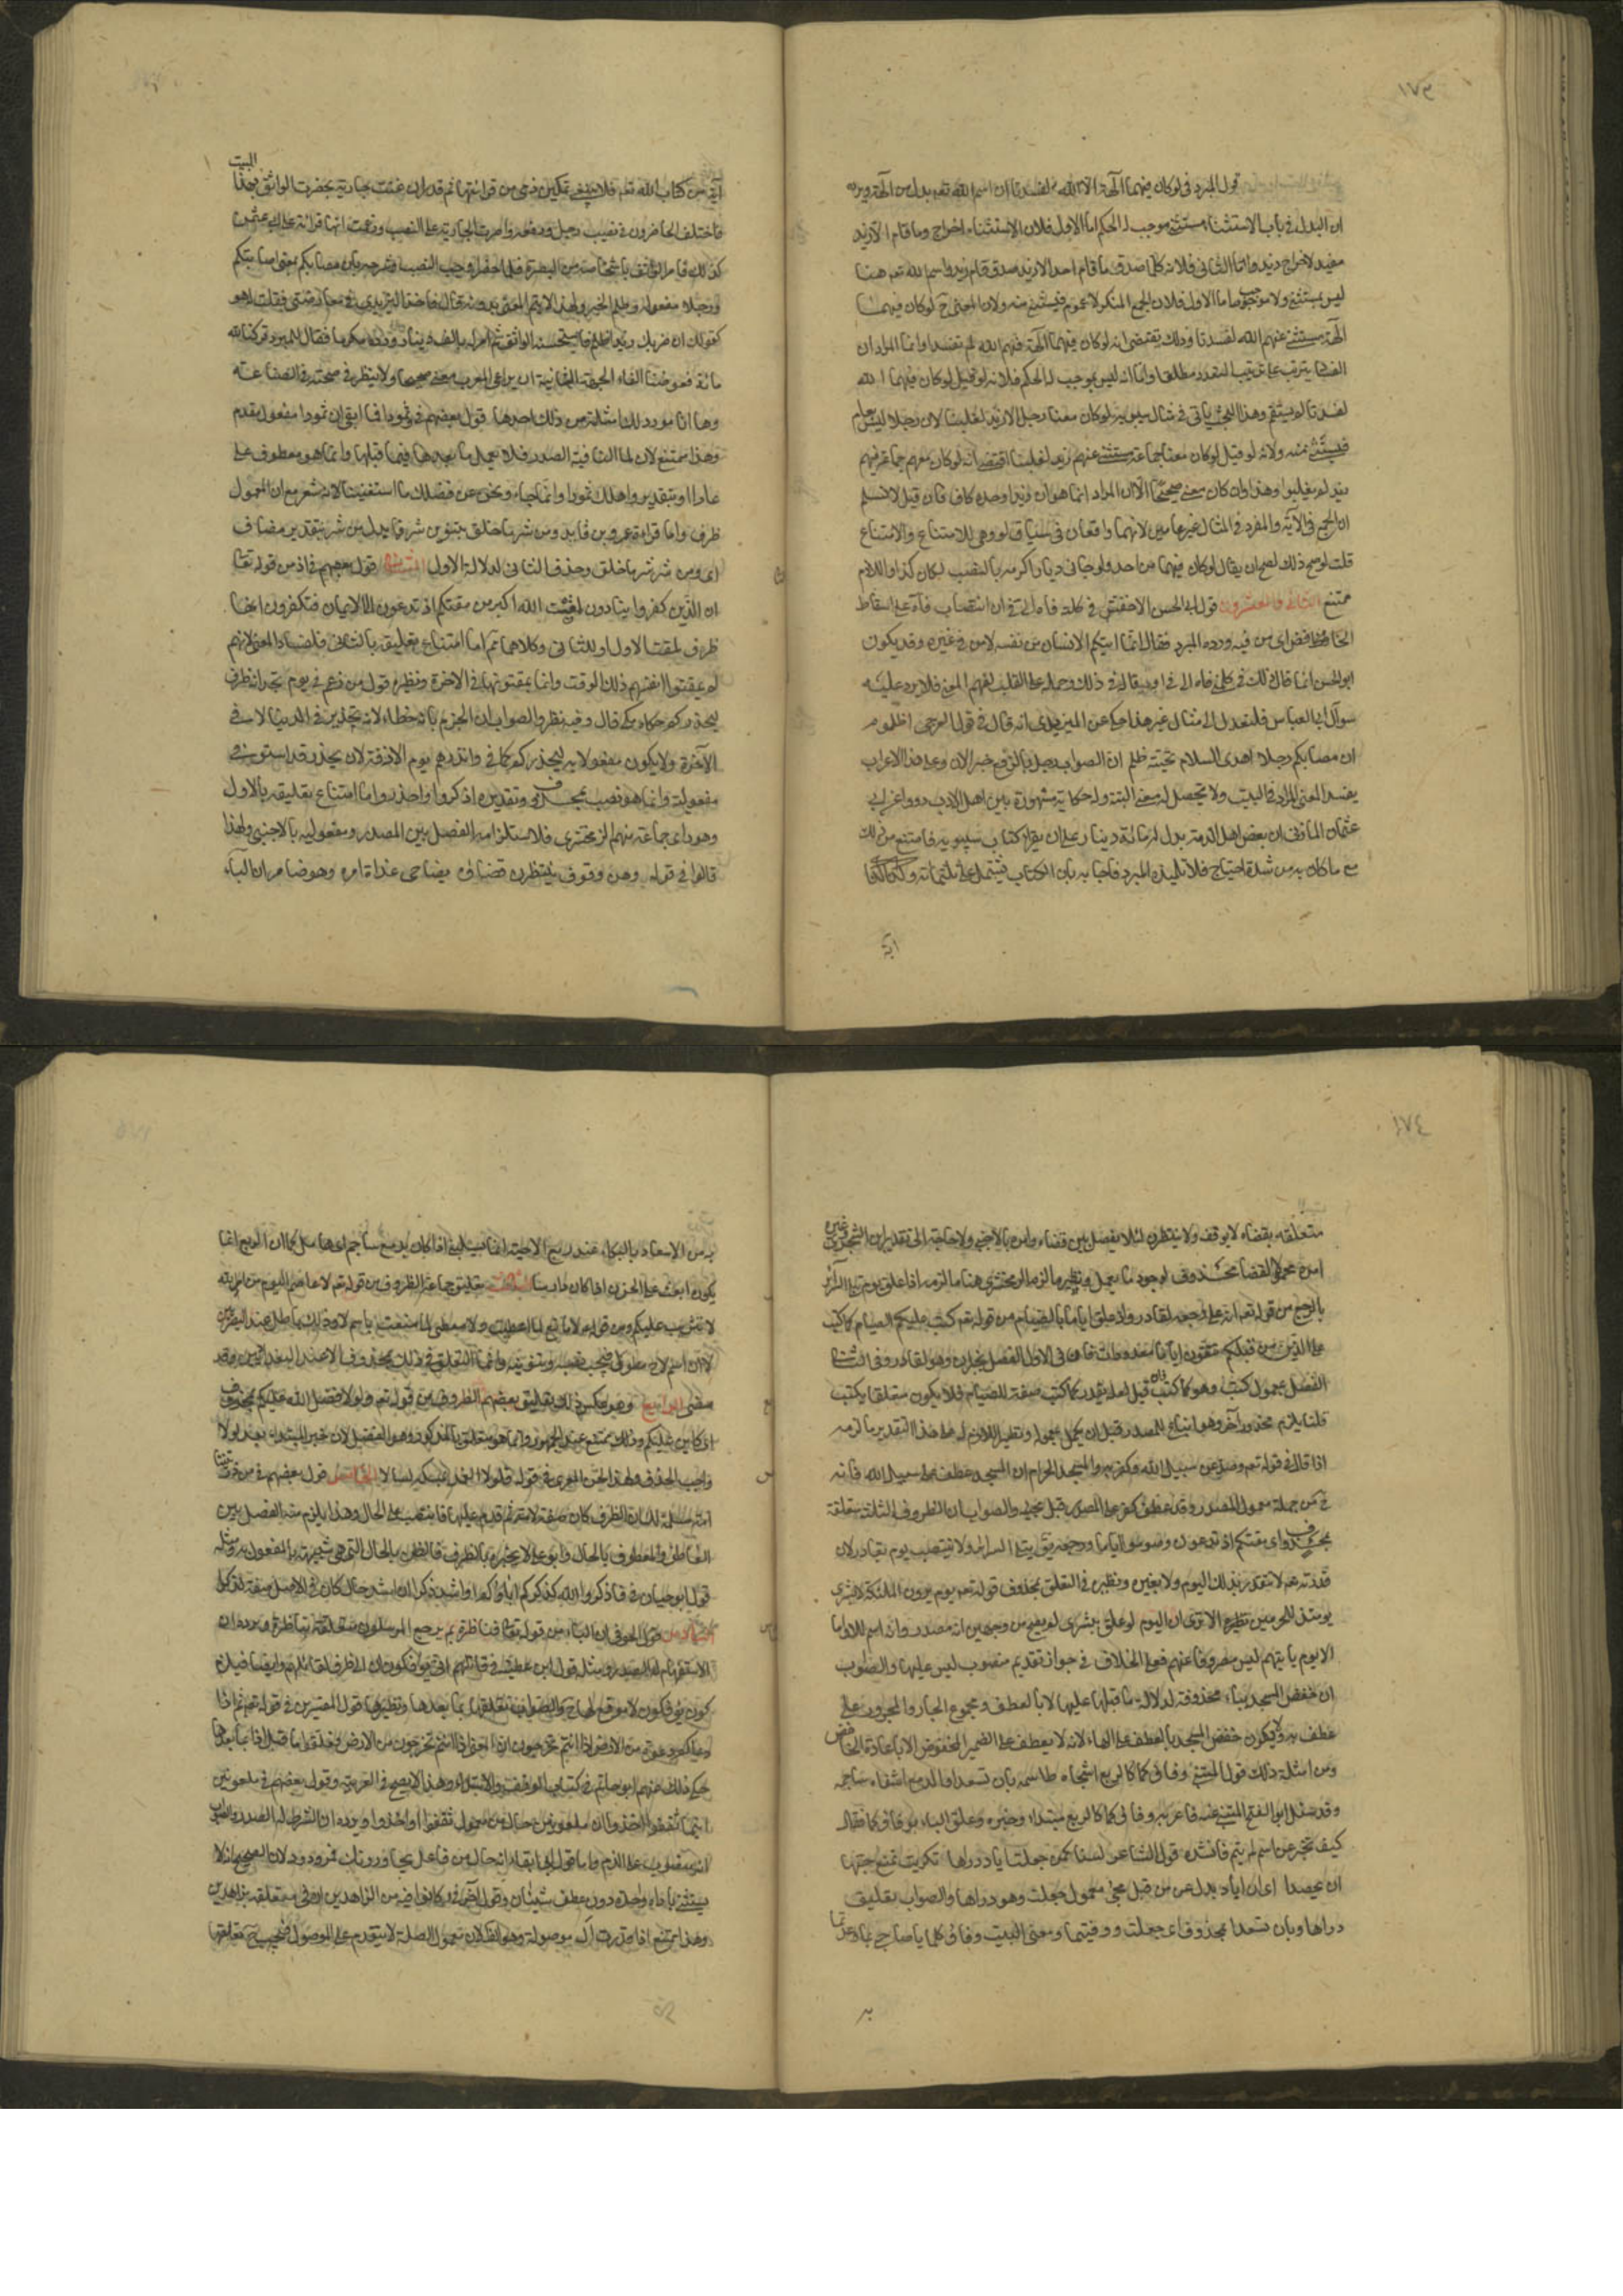 قول المبرد فى لو كان فيهما آلهة الا الله لفسدتا ان اسم الله تعم بدل من آلهة ويرده
ان البدل فى باب الاستثناء مستثنى موجب له الحكم اما الاول فلان الاستثناء اخراج وما قام الا زيد
مفيد لاخراج زيد واما الثانى فلانه كلما صدق ما قام احد الا زيد صدق قام زيد واسم الله تعم هنا
ليس بمستثنى ولا موجب له اما الاول فلان الجمع المنكر لا عموم له فيستثنى منه ولان المعنى ح لو كان فيهما
آلهة مستثنى عنهم الله لفسدتا وذلك يقتضى انه لو كان فيهما آلهة فيهم الله لم تفسدا وانما المراد ان
الفساد يترتب على تقدير التعدد مطلقا واما انه ليس بموجب له الحكم فلانه لو قيل لو كان فيهما الله
لفسدتا لم يستقم وهذا البحث يأتى فى مثال سيبويه لو كان معنا رجل الا زيد لغلبنا لان رجلا ليس بعام
فيستثنى منه ولانه لو قيل لو كان معنا جماعة مستثنى عنهم زيد لغلبنا اقتضى انه لو كان معهم جماعة فيهم
زيد لم يغلبوا وهذا وان كان معنى صحيحا الا ان المراد انما هو ان زيدا وحده كاف فان قيل لا نسلم
ان الجمع فى الآية والمفرد فى المثال غير عامين لانهما واقعان فى سياق لو وهى للامتناع والامتناع
قلت لو صح ذلك لصح ان يقال لو كان فيهما من احد ولو جاءنى ديارا كرمه بالنصب لكان كذا واللازم
ممتنع الثانى والعشرون قول ابى الحسن الاخفش فى كلمته فاه الى فى ان انتصاب فاه على اسقاط
الخافض اى من فيه ورده المبرد فقال انما يتكلم الانسان من نفسه لا من فى غيره وقد يكون
ابو الحسن انما قال ذلك فى كلمنى فاه الى فى او يقال فى ذلك وحمله على القلب لفهم المعنى فلا يرد عليه
سؤال ابى العباس فلنعدل الى مثال غير هذا حكى عن اليزيدى انه قال فى قول العرجى اظلوم
ان مصابكم رجلا اهدى السلام تحية ظلم ان الصواب رجل بالرفع خبر الان وعلى هذا الاعراب
يفسد المعنى المراد فى البيت ولا يتحصل له معنى البتة وله حكاية مشهورة بين اهل الادب رووا عن ابى
عثمان المازنى ان بعض اهل الذمة بذل له مائة دينار على ان يقرئه كتاب سيبويه فامتنع من ذلك
مع ما كان به من شدة احتياج فلامه تلميذه المبرد فاجابه بان الكتاب يشتمل على ثلثمائة وكذا كذا
آية
البيت
آية من كتاب الله تعم فلا ينبغى تمكين ذمى من قرائتها ثم قدر ان غنت جارية بحضرت الواثق بهذا
فاختلف الحاضرون فى نصب رجل ورفعه واصرت الجارية على النصب وزعمت انها قرائة على ابى عثمن
كذلك فامر الواثق باشخاصه من البصرة فلما حضر اوجب النصب وشرحه بان مصابكم بمعنى اصابتكم
ورجلا مفعوله وظلم الخبر ولهذا لا يتم المعنى بدونه قال فاخذ اليزيدى فى معارضتى فقلت له هو
كقولك ان ضربك زيدا ظلم فاستحسنه الواثق ثم امر له بالف دينار ورده مكرما فقال للمبرد تركنا لله
مائة فعوضنا الفا الجهة الثانية ان يراعى المعرب معنى صحيحا ولا ينظر فى صحته فى الصناعة
وها انا مورد لك امثلة من ذلك احدها قول بعضهم فى وثمودا فما ابقى ان ثمودا مفعول مقدم
وهذا ممتنع لان لما النافية الصدر فلا يعمل ما بعدها فيما قبلها وانما هو معطوف على
عادا او بتقدير واهلك ثمودا وانما جاء ونحن عن فضلك ما استغنينا لانه شعر مع ان المعمول
ظرف واما قراءة عمرو بن فايد ومن شر ما خلق بتنوين شر فما بدل من شر بتقدير مضاف
اى ومن شر شر ما خلق وحذف الثانى لدلالة الاول الثانى قول بعضهم فى اذ من قوله تعا
ان الذين كفروا ينادون لمقت الله اكبر من مقتكم اذ تدعون الى الايمان فتكفرون انها
ظرف لمقت الاول او للثانى وكلاهما ثم اما امتناع تعليقه بالثانى فلفساد المعنى لانهم
لم يمقتوا انفسهم ذلك الوقت وانما يمقتونها فى الآخرة ونظيره قول من زعم فى يوم تجد انه ظرف
ليحذركم حكاه مكى قال وفيه نظر والصواب ان الجزم بانه خطاء لان التحذير فى الدنيا لا فى
الآخرة ولا يكون مفعولا به ليحذركم كما فى وانذرهم يوم الآزفة لان يحذر قد استوفى
مفعوليه وانما هو نصب بمحذوف وتقديره اذكروا واحذروا واما امتناع تعليقه بالاول
وهو راى جماعة منهم الزمخشرى فلاستلزامه الفصل بين المصدر ومعموله بالاجنبى ولهذا
قالوا فى قوله وهن وقوف ينتظرن قضاه بضاحى غداة امره وهو ضامر ان الباء
متعلقة بقضاه لا بوقف ولا ينتظرن لئلا يفصل بين قضاه وامره بالاجنبى ولا حاجة الى تقدير ابن الشجرى وغيره
امره معمولا لقضاء محذوف لوجود ما يعمل ونظير ما لزم الزمخشرى هنا ما لزمه اذ علق يوم تبلى السرائر
بالرجع من قوله تعم انه على رجعه لقادر واذ علق اياما بالصيام من قوله تعم كتب عليكم الصيام كما كتب
على الذين من قبلكم لعلكم تتقون اياما معدودات فان فى الاول الفصل بخبر ان وهو لقادر وفى الثانى
الفصل بمعمول كتب وهو كما كتب فان قيل لعله يقدر كما كتب صفة للصيام فلا يكون متعلقا بكتب
قلنا يلزم محذور آخر وهو اتباع المصدر قبل ان يكمل معموله ونظير اللازم له على هذا التقدير ما لزمه
اذا قال فى قوله تعم وصد عن سبيل الله وكفر به والمسجد الحرام ان المسجد عطف على سبيل الله فانه
ح من جملة معمول المصدر وقد عطف كفر على المصدر قبل مجيئه والصواب ان الظروف الثلثة متعلقة
بمحذوف اى مقتكم اذ تدعون وصوموا اياما ويرجعه يوم تبلى السرائر ولا ينتصب يوم بقادر لان
قدرته تعم لا تتقيد بذلك اليوم ولا بغيره ونظيره فى التعلق بمحذوف قوله تعم يوم يرون الملئكة لا بشرى
يومئذ للمجرمين الا ترى ان اليوم لو علق ببشرى لم يصح من وجهين انه مصدر وانه اسم للا واما
الا يوم يأتيهم ليس مصروفا عنهم فعلى الخلاف فى جواز تقديم منصوب ليس عليها والصواب
ان خفض المسجد بباء محذوفة لدلالة ما قبلها عليها لا بالعطف ومجموع الجار والمجرور على
عطف به ولا يكون خفض المسجد بالعطف على الهاء لانه لا يعطف على الضمير المخفوض الا باعادة الخافض
ومن امثلة ذلك قول المتنبى وفاؤكما كالربع اشجاه طاسمه بان تسعدا والدمع اشفاه ساجمه
وقد سئل ابو الفتح المتنبى عنه فاعرب وفاؤكما كالربع مبتداء وخبره وعلق الباء بوفاؤكما فقال
كيف تخبر عن اسم لم يتم فانشده قول الشاعر لسنا كمن جعلت اياد دراها تكريت تمنع حبها
ان يحصدا اى ان اياد بدل من من قبل مجئ معمول جعلت وهو دراها والصواب تعليق
دراها وبان تسعدا بمحذوف اى جعلت ووفيتما ومعنى البيت وفاؤكما يا صاحبى بما وعدتما
به
به من الاسعاد بالبكاء عند ربع الاحبة انما يسلينى اذا كان بدمع ساجم اى هامل كما ان الربع انما
يكون ابعث على الحزن اذا كان دارسا الثالث تعليق جماعة الظروف من قوله تعم لا عاصم اليوم من امر الله
لا تثريب عليكم ومن قوله ع لا مانع لما اعطيت ولا معطى لما منعت باسم لا وذلك باطل عند البصريين
لان اسم لا ح مطول فيجب نصبه وتنوينه وانما التعلق فى ذلك بمحذوف الا عند البغداديين وقد
مضى الرابع وهو عكس ذلك تعليق بعضهم الظرف من قوله تعم ولولا فضل الله عليكم بمحذوف
اى كاين عليكم وذلك ممتنع عند الجمهور وانما هو متعلق بالمذكور وهو الفضل لان خبر المبتداء بعد لولا
واجب الحذف ولهذا لحن المعرى فى قوله فلولا الغمد يمسكه لسالا الخامس قول بعضهم فى من ذريتنا
امة مسلمة لك ان الظرف كان صفة لامة ثم قدم عليها فانتصب على الحال وهذا يلزم منه الفصل بين
العاطف والمعطوف بالحال وابو على لا يجيزه بالظرف فما الظن بالحال التى هى شبيهة بالمفعول به ومثله
قول ابو حيان فى فاذكروا الله كذكركم اباءكم او اشد ذكرا ان اشد حال كان فى الاصل صفة لذكرا
السادس قول الحوفى ان الباء من قوله تعا فناظرة بم يرجع المرسلون متعلقة بناظرة ويرده ان
الاستفهام له الصدر ومثله قول ابن عطية فى قاتلهم الله انى يؤفكون ان انى ظرف لقاتلهم وايضا فيلزم
كون يؤفكون لا موقع لها ح والصواب تعلقها بما بعدها ونظيرها قول المفسرين فى قوله تعم ثم اذا
دعاكم دعوة من الارض اذا انتم تخرجون ان المعنى اذا انتم تخرجون من الارض فعلقوا ما قبل اذا بما بعدها
حكى ذلك عنهم ابو حاتم فى كتاب الوقف والابتداء وهذا لا يصح فى العربية وقول بعضهم فى ملعونين
اينما ثقفوا اخذوا ان ملعونين حال من معمول ثقفوا او اخذوا ويرده ان الشرط له الصدر والصواب
انه منصوب على الذم واما قول ابى البقاء انه حال من فاعل يجاورونك فمردود لان الصحيح انه لا
يستثنى باداة واحدة دون عطف شيئان وقول آخر فى وكانوا فيه من الزاهدين ان فى متعلقة بزاهدين
وهذا ممتنع اذا قدرت ال موصولة وهو الظ لان معمول الصلة لا يتقدم على الموصول فيجب ح تعلقها